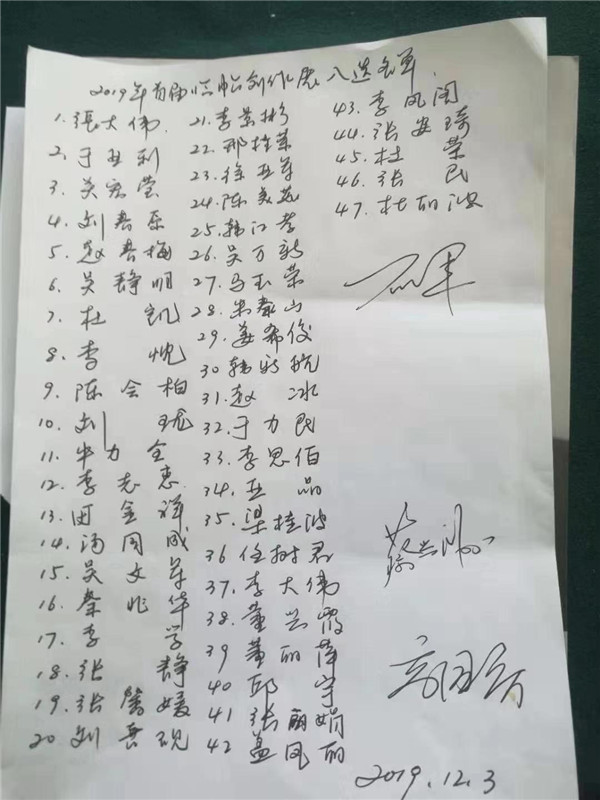 2019年首届临帖创作展入选名单
1. 張大伟
2. 于亚利
3. 关宏莹
4. 刘春乐
5. 赵春梅
6. 吴静明
7. 杜凯
8. 李忱
9. 陈会柏
10. 刘珑
11. 牟力全
12. 李志惠
13. 田金祥
14. 汤国成
15. 吴文军
16. 秦兆华
17. 李学
18. 张静
19. 张馨媛
20. 刘春砚
21. 李景彬
22. 邢桂荣
23. 徐亚军
24. 陈美花
25. 韩江孝
26. 吴万新
27. 马玉荣
28. 朱泰山
29. 姜希俊
30 韩新航
31. 赵冰
32. 于力民
33. 李思伯
34. 王晶
35. 梁桂波
36 任树君
37. 李大伟
38. 董兴霞
39 董丽萍
40 邱宇
41 张丽娟
42 孟凤丽
43. 李凤闵
44. 张安琦
45. 杜荣
46. 张民
47. 杜丽波
2019.12.3